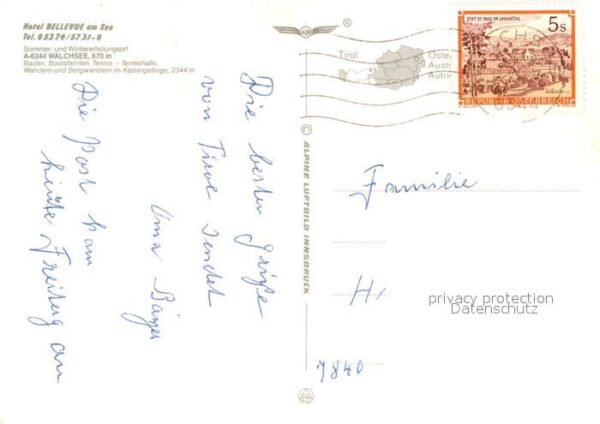 Hotel BELLEVUE am See
Tel. 05374/5731-0
Sommer- und Wintererholungsort
A-6344 WALCHSEE, 670 m
Baden, Bootsfahrten, Tennis – Tennishalle,
Wandern und Bergwandern im Kaisergebirge, 2344 m
Die besten Grüße
von Tirol sendet
Oma
Die Post kam
heute Freitag an
© ALPINE LUFTBILD INNSBRUCK
®
Tirol
STIFT ST. PAUL IM LAVANTTAL
5s
REPUBLIK ÖSTERREICH
Familie
H
7840
privacy protection
Datenschutz